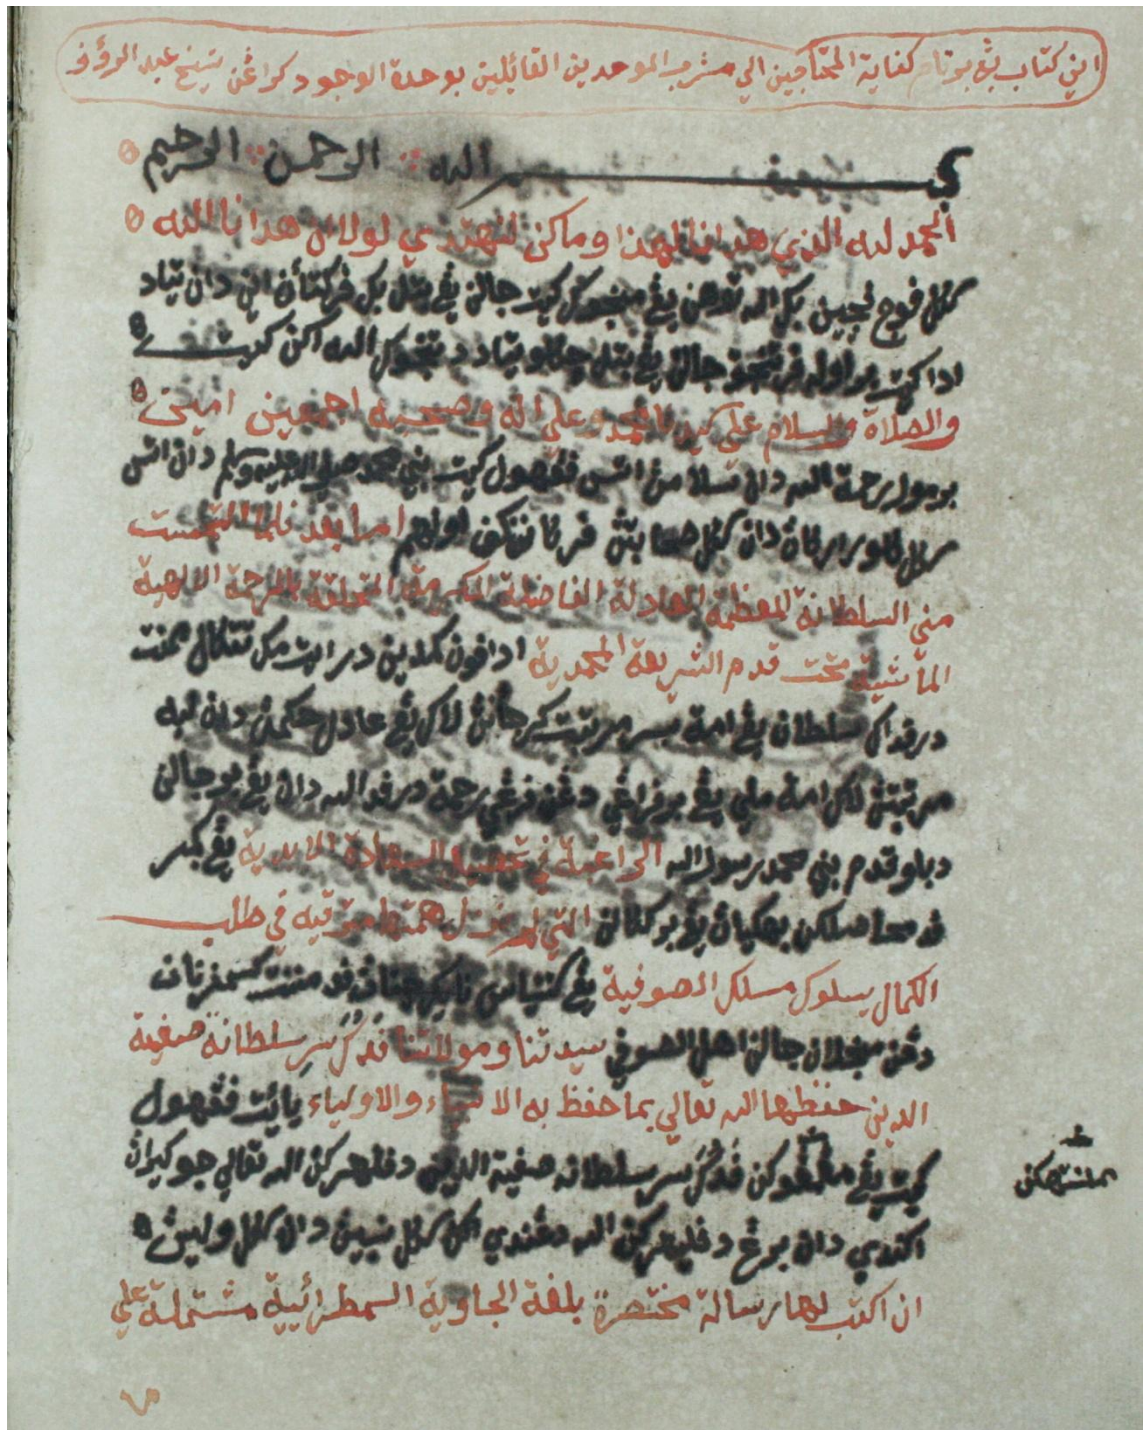 اين كتاب يڠ برنام كفاية المحتاجين الي مشرب الموحدين القائلين بوحدة الوجود كراڠن شيخ عبد الرؤوف
بسم الله الرحمن الرحيم
الحمد لله الذي هدانا لهذا وما كنا لنهتدي لولا ان هدانا الله
سكل فوج باݢي الله توهن يڠ منجوكن كيت جالن يڠ بتل اين دان تياد
اد كيت براوله فتنجق جالن يڠ بتل جكلو تياد دتنجوكي الله اكن كيت
والصلاة والسلام علي سيدنا محمد وعلي اله وصحبه اجمعين امين
برمول رحمة الله دان سلامن اتس فڠهول كيت نبي محمد صلي الله عليه وسلم دان اتس
سكل كلوارݢان دان سكل صحابتڽ امابعد فلما التمست
مني السلطانة المعظمة العادلة الفاضلة المكرمة المتعلقة بالرحمة الالهية
الماشية تحت قدم الشريعة المحمدية ادافون كمدين در ايت مك تتكال منت
درفداكو سلطان يڠ امة بسر مرتبت كرجأنڽ لاݢي يڠ عادل حكمڽ دان لبه
مرتبتڽ لاݢي امة ملي يڠ برفراڠي دڠن فراڠي رحمة درفد الله دان يڠ برجالن
دباوه قدم نبي محمد رسول الله الراغبة في تحصيل السعادة الابدية يڠ ݢمر
فد محاصلكن بهݢيان يڠ بركکالن التي لم تزل همتها مترقية في طلب
الكمال بسلوك مسلك الصوفية يڠ سنتياس نايك چيتان فد منتت كسمفرنأن
دڠن منجالن جالن اهل الصوفي سيدتنا ومولاتنا فدك سري سلطانة صفية
الدين حفظها الله تعالي بما حفظ به الانبياء والاولياء يائت فڠهول
كيت يڠ فدك سري سلطانه صفية الدين دفليهراكن الله تعالي جوا كيراڽ
اكندي دان بارڠ دفليهراكن الله دڠندي اكن سكل نبين دان سكل وليڽ
ان اكتب لها رسالة مختصرة بلغة الجاوية السمطرائية مشتملة علي